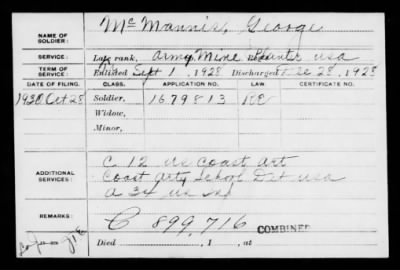 NAME OF SOLDIER: McMannis, George
SERVICE: Late rank, Army Mine Planter USA
TERM OF SERVICE: Enlisted Sept 1, 1928 Discharged Dec 28, 1928
DATE OF FILING. CLASS. APPLICATION NO. LAW CERTIFICATE NO.
1930 Oct 28 Soldier, 1679813
Widow,
Minor,
ADDITIONAL SERVICES:
C 12 US Coast Art
Coast Arty School Det USA
A 34 US Inf
REMARKS: C 899,716 COMBINED
Died , 1 , at